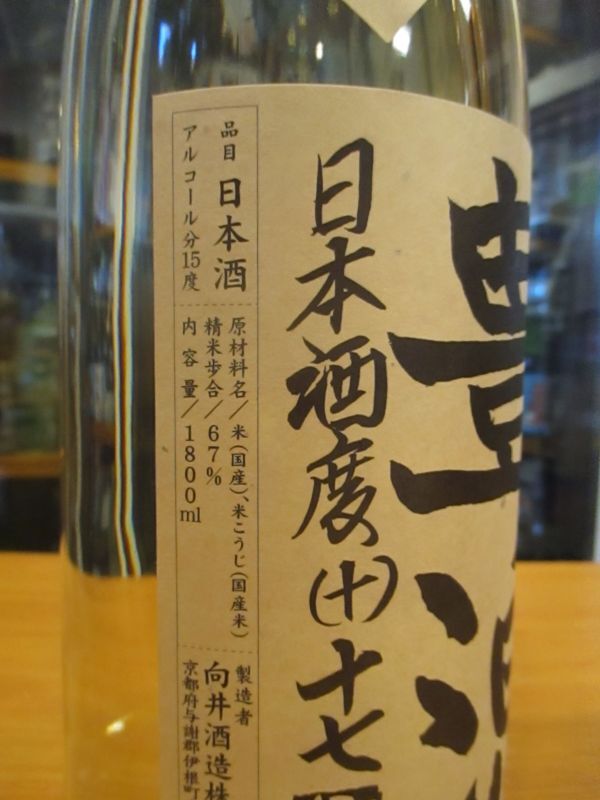 豊
日本酒度(十)十七
品目 日本酒
アルコール分15度
原材料名/米(国産)、米こうじ(国産米)
精米歩合/67%
内容量/1800ml
製造者
向井酒造株
京都府与謝郡伊根町